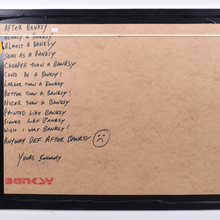 AFTER BANKSY
NEARLY A BANKSY
ALMOST A BANKSY
SAME AS A BANKSY
CHEAPER THAN A BANKSY
COULD BE A BANKSY!
LARGER THAN A BANKSY
BETTER THAN A BANKSY!
NICER THAN A BANKSY
PAINTED LIKE BANKSY
SIGNED LIKE BANKSY
WISH I WAS BANKSY!
ANYWAY DEF AFTER BANKSY
YOURS
BANKSY